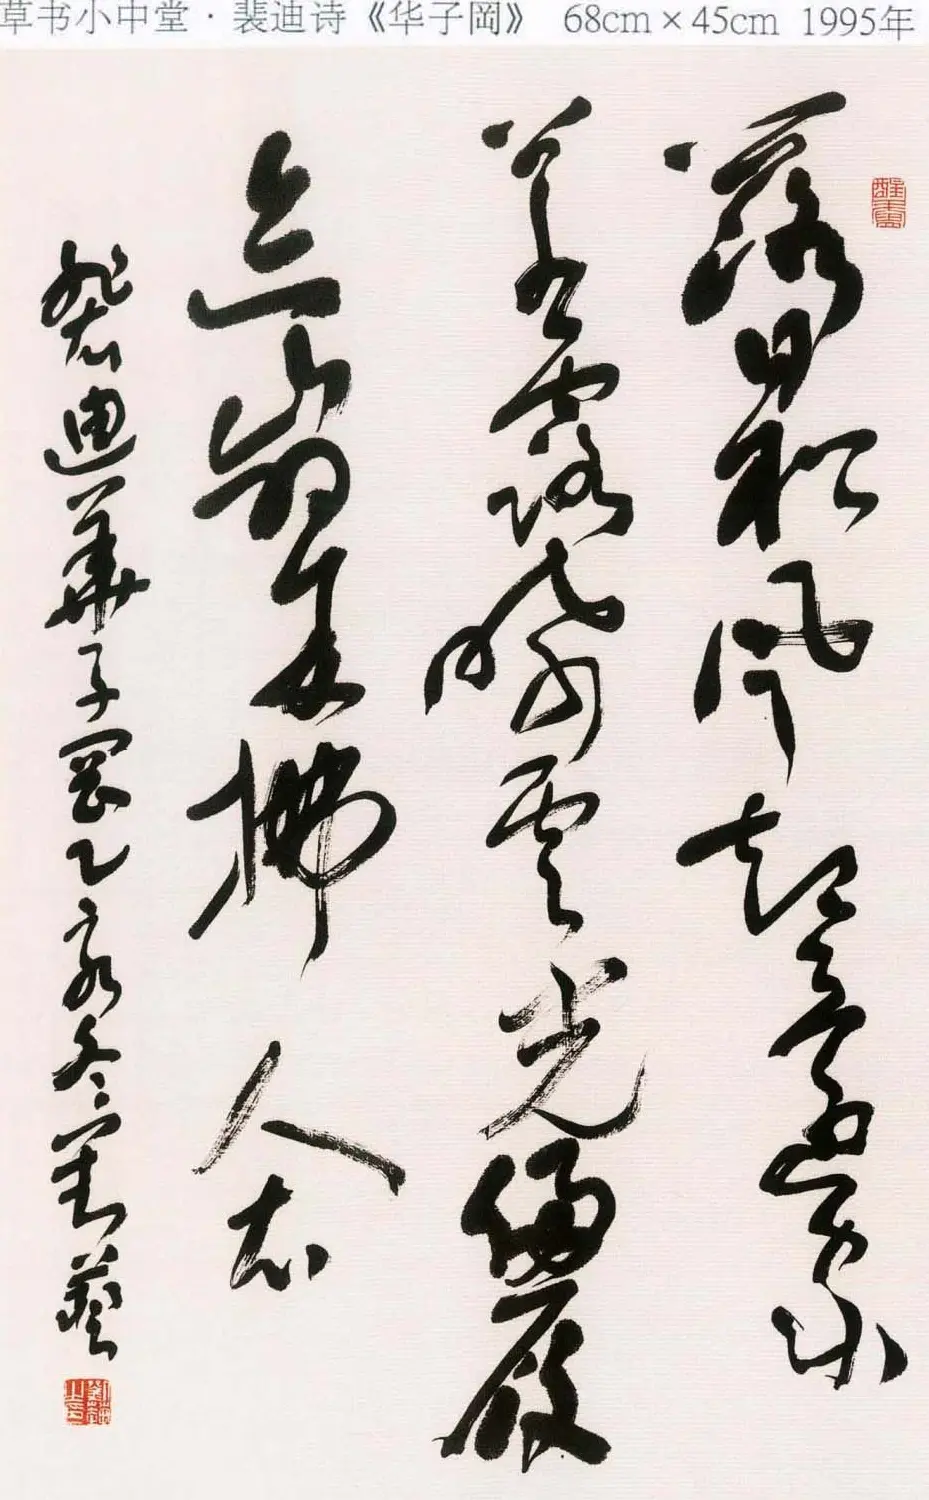 草书小中堂·裴迪诗《华子岡》 68cm×45cm 1995年
落日松风起還家
草露晞雲光侵履
跡山翠拂人衣
裴迪華子岡乙亥冬月艺